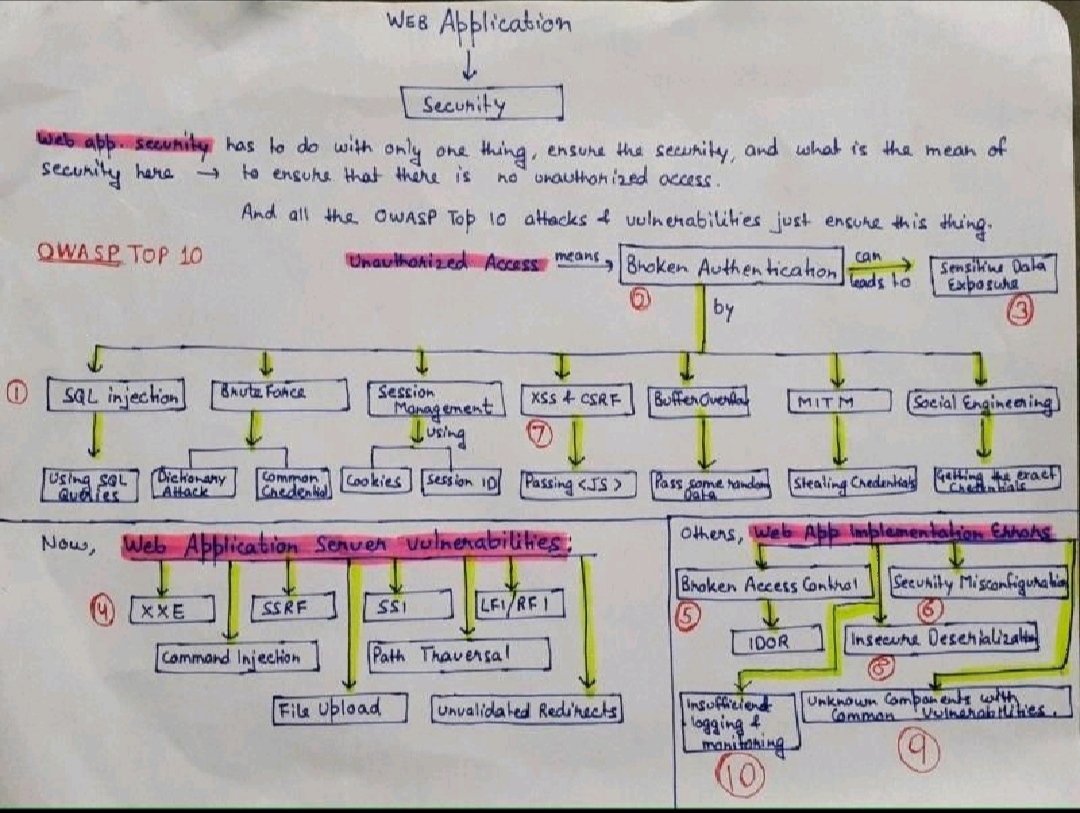 WEB Application
Security
Web app. security has to do with only one thing, ensure the security, and what is the mean of
security here → to ensure that there is no unauthorized access.
And all the OWASP Top 10 attacks & vulnerabilities just ensure this thing.
OWASP TOP 10
Unauthorized Access means → Broken Authentication can leads to Sensitive Data
Exposure
② ③
by
① SQL injection Brute Force Session
Management XSS & CSRF Buffer Overflow MITM Social Engineering
⑦
using
Using SQL
Queries
Dictionary
Attack
Common
Credential
Cookies
Session ID
Passing <JS>
Pass some random
Data
Stealing Credentials
Getting the exact
Credentials
Now, Web Application Server vulnerabilities:
④ XXE SSRF SSI LFI/RFI
Command Injection Path Traversal
File Upload Unvalidated Redirects
Others, Web App Implementation Errors
Broken Access Control Security Misconfiguration
⑤ ⑥
IDOR Insecure Deserialization
⑧
Insufficient
logging &
monitoring
⑩
Unknown Components with
Common Vulnerabilities.
⑨